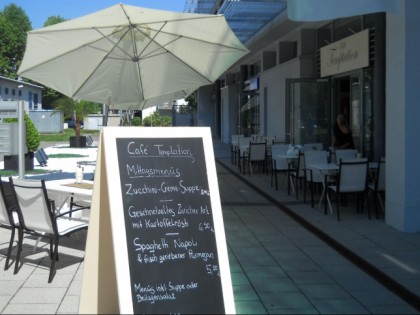 Temptation
Café Temptation
Mittagsmenüs
Zucchini-Creme Suppe
Geschnetzeltes Züricher Art
mit Kartoffelrösti 6,90
Spaghetti Napoli
& frisch geriebener Parmesan
5,90
Menüs inkl Suppe oder
Beilagensalat